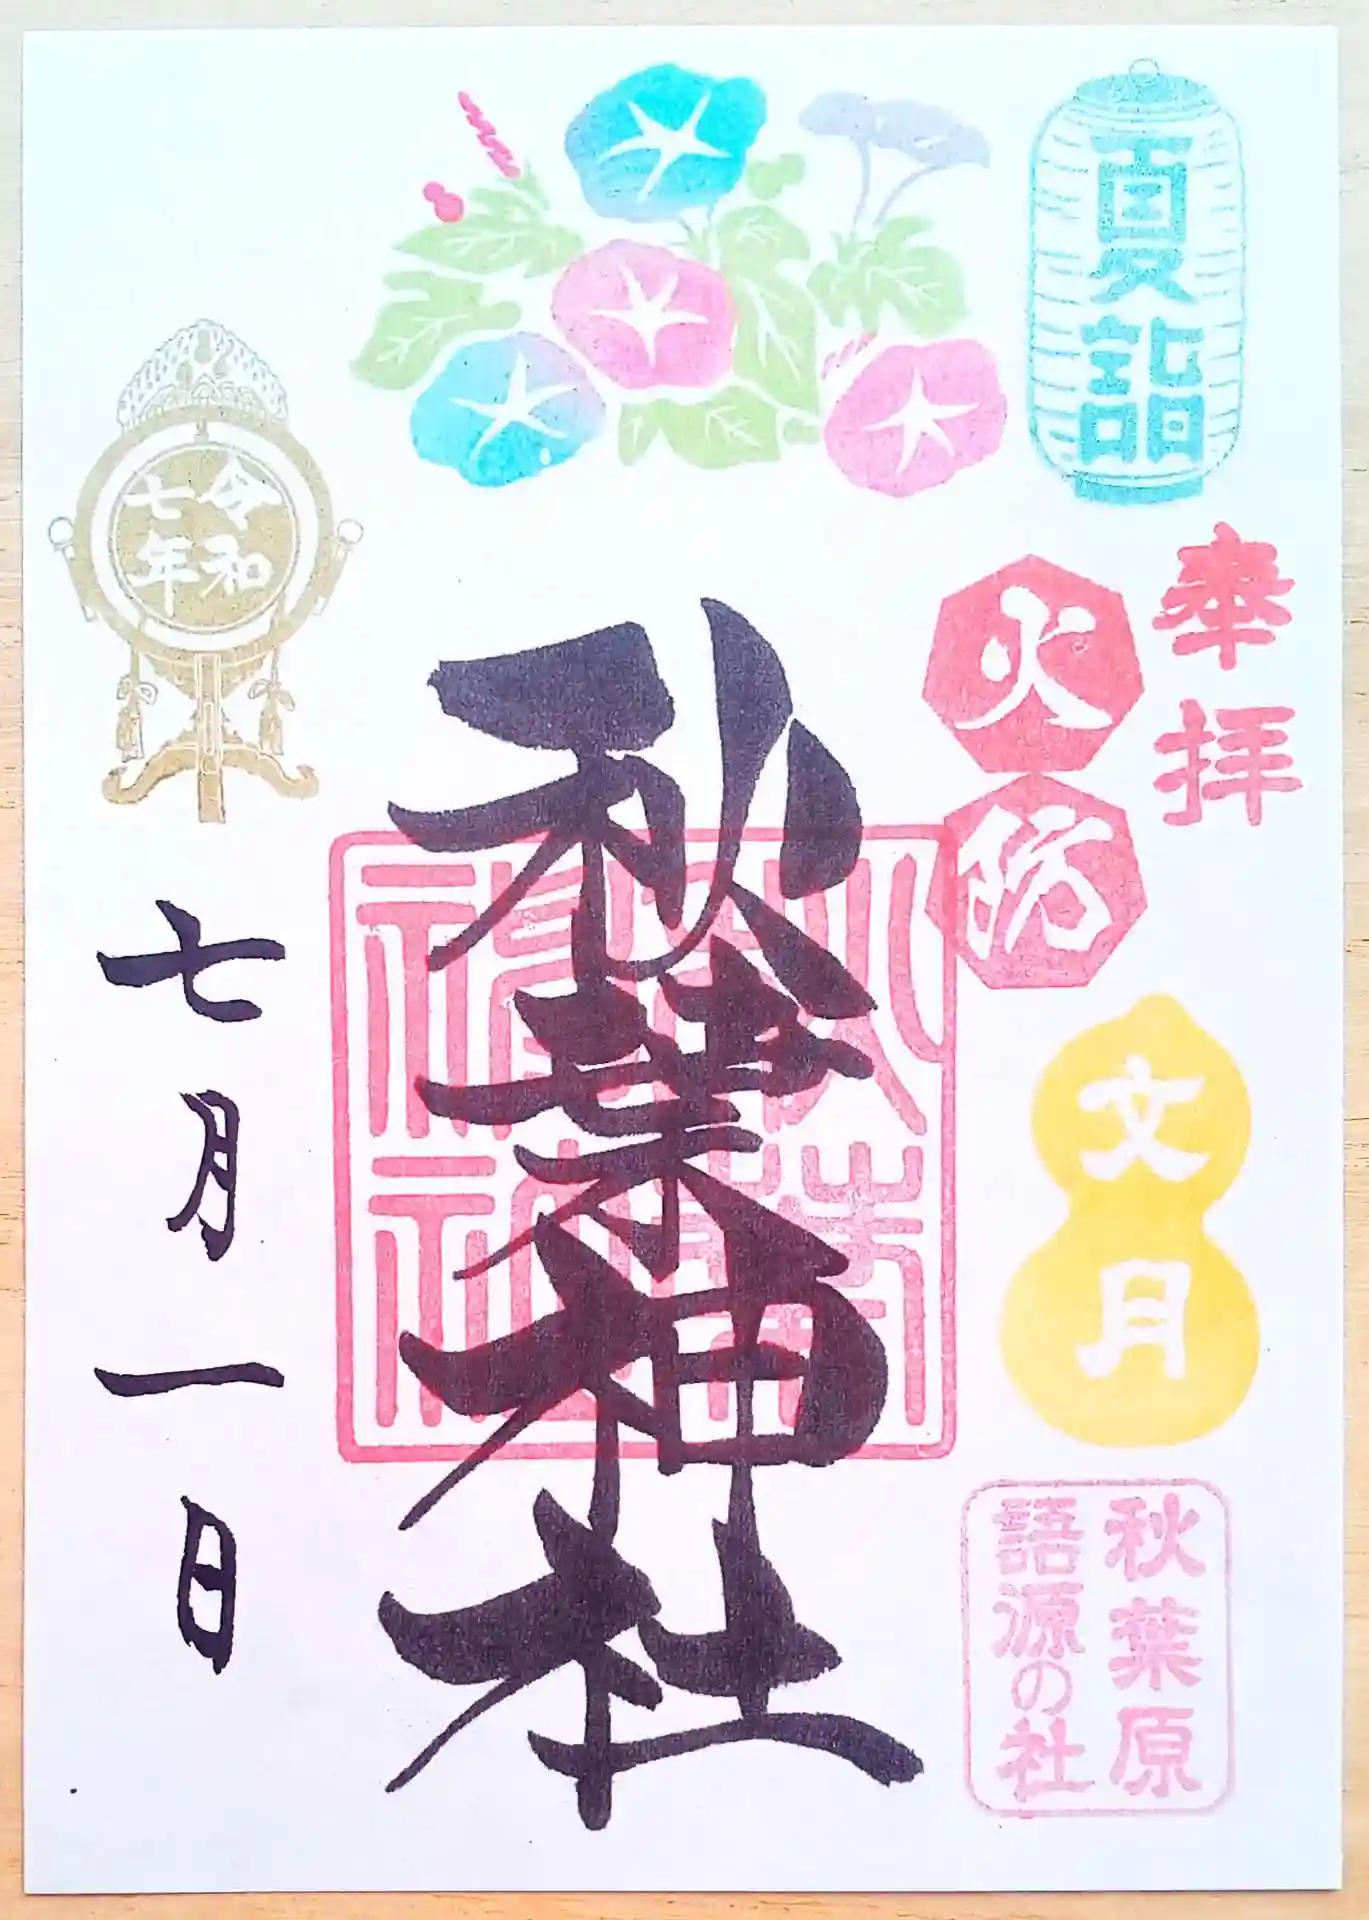 夏詣
奉拝
火防
文月
秋葉原
語源の社
秋葉神社
秋葉
神社
令和
七年
七月一日